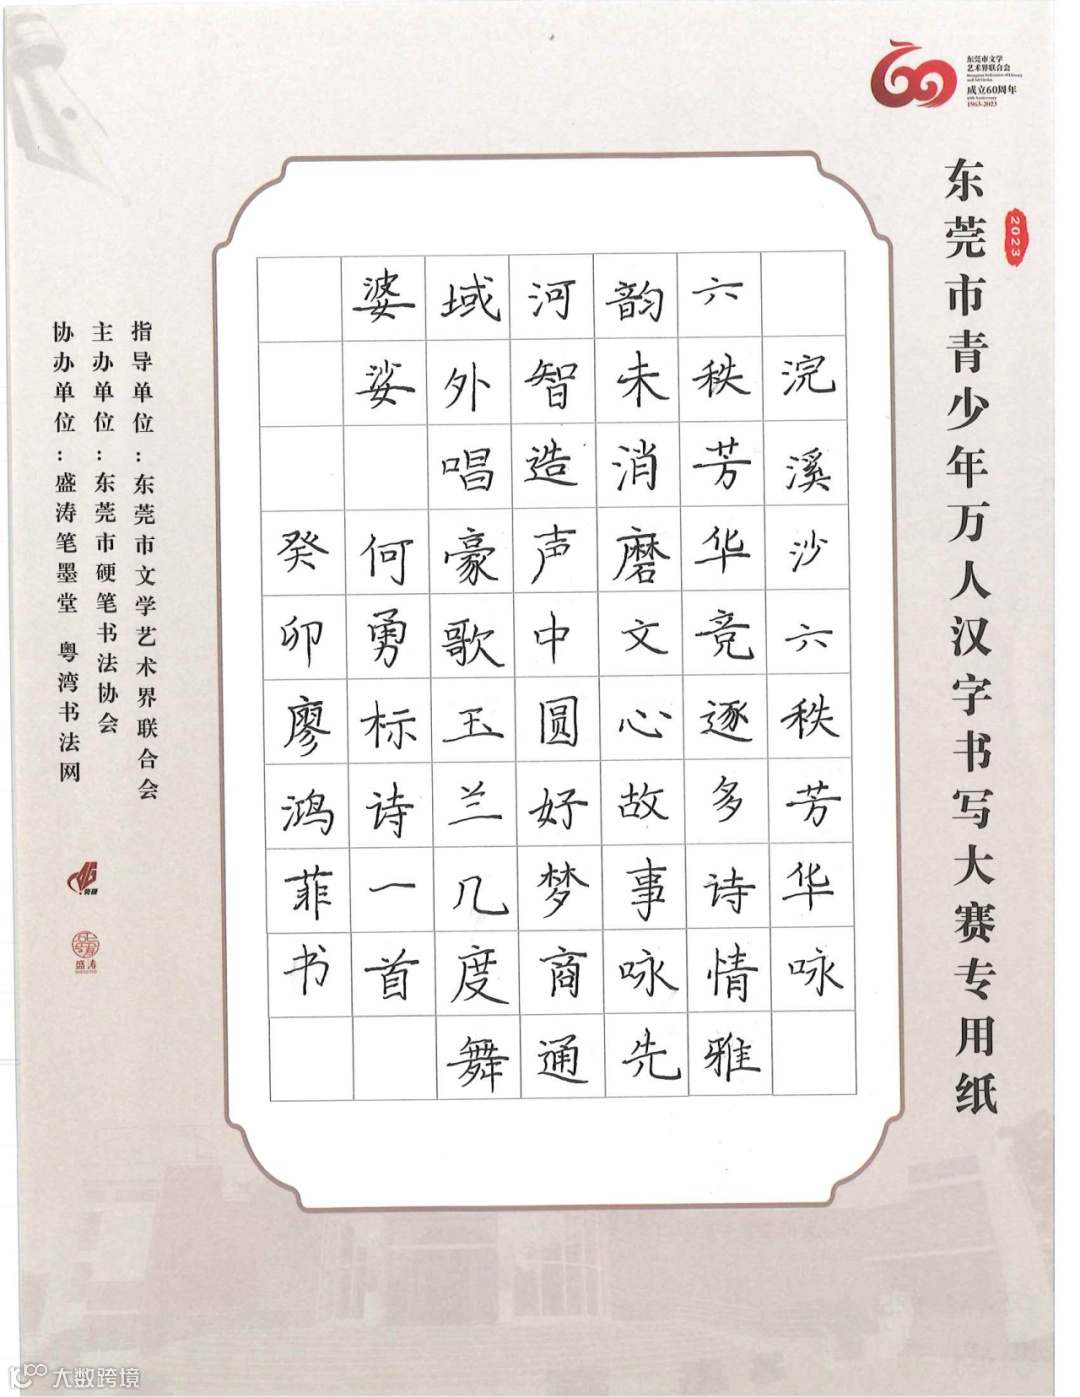 东莞市文学
艺术界联合会
成立60周年
1963-2023
2023
东莞市青少年万人汉字书写大赛专用纸
浣溪沙六秩芳华咏
六秩芳华竞逐多诗情雅
韵未消磨文心故事咏先
河智造声中圆好梦商通
域外唱豪歌玉兰几度舞
婆娑何勇标诗一首
癸卯廖鸿菲书
指导单位：东莞市文学艺术界联合会
主办单位：东莞市硬笔书法协会
协办单位：盛涛笔墨堂 粤湾书法网
盛涛
大数跨境